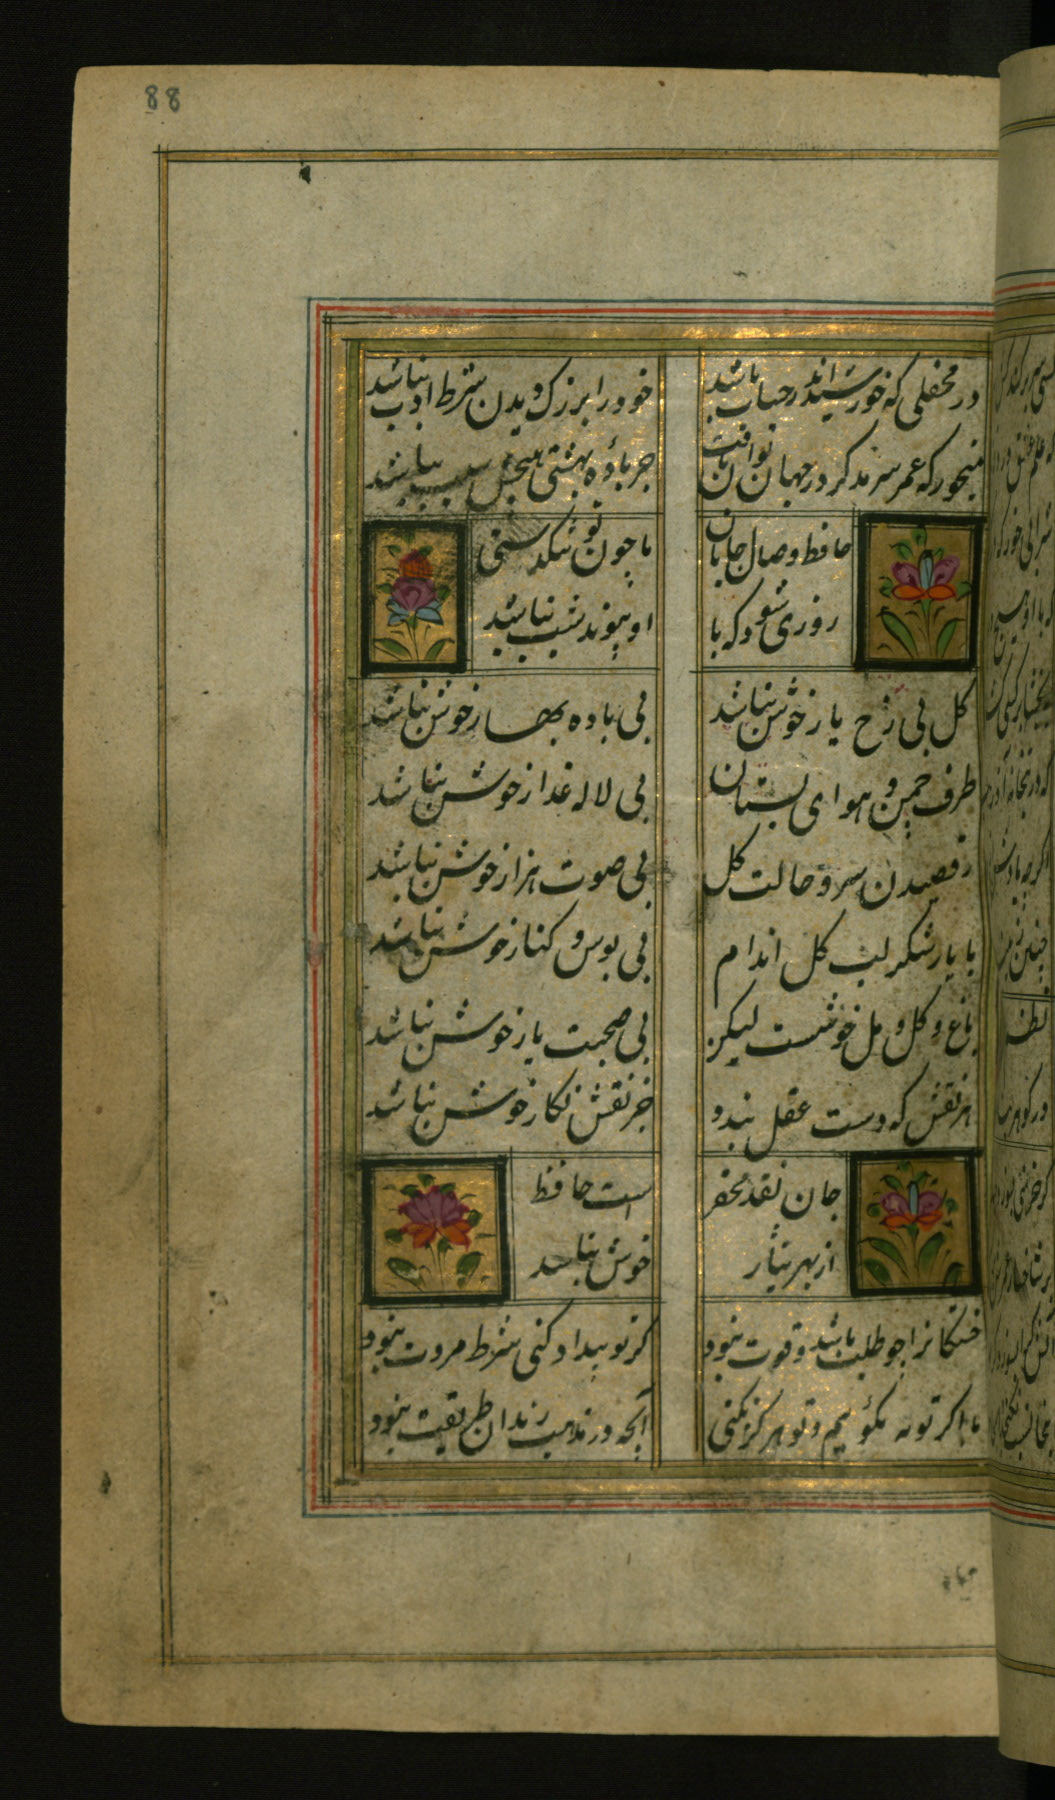 88
در محفلی که خورشید اندر حساب باشد
خود را بزرک دیدن شرط ادب نباشد
میخور که عمر سرمد کر در جهان توان یافت
جز بادۀ بهشتی هیچش سبب نباشد
حافظ وصال جانان
با چون تو تنکدستی
روزی شود که با
او پیوند شب نباشد
کل بی رخ یار خوش نباشد
بی باده بهار خوش نباشد
طرف چمن و هوای بستان
بی لاله عذار خوش نباشد
رقصیدن سرو و حالت کل
بی صوت هزار خوش نباشد
با یار شکر لب کل اندام
بی بوس و کنار خوش نباشد
باغ و کل و مل خوشست لیکن
بی صحبت یار خوش نباشد
هر نقش که دست عقل بندد
جز نقش نکار خوش نباشد
جان نقد محقر
است حافظ
از بهر نثار
خوش نباشد
خستکانرا چو طلب باشد و قوت نبود
کر تو بیداد کنی شرط مروت نبود
آنچه در مذهب رندان طریقت نبود